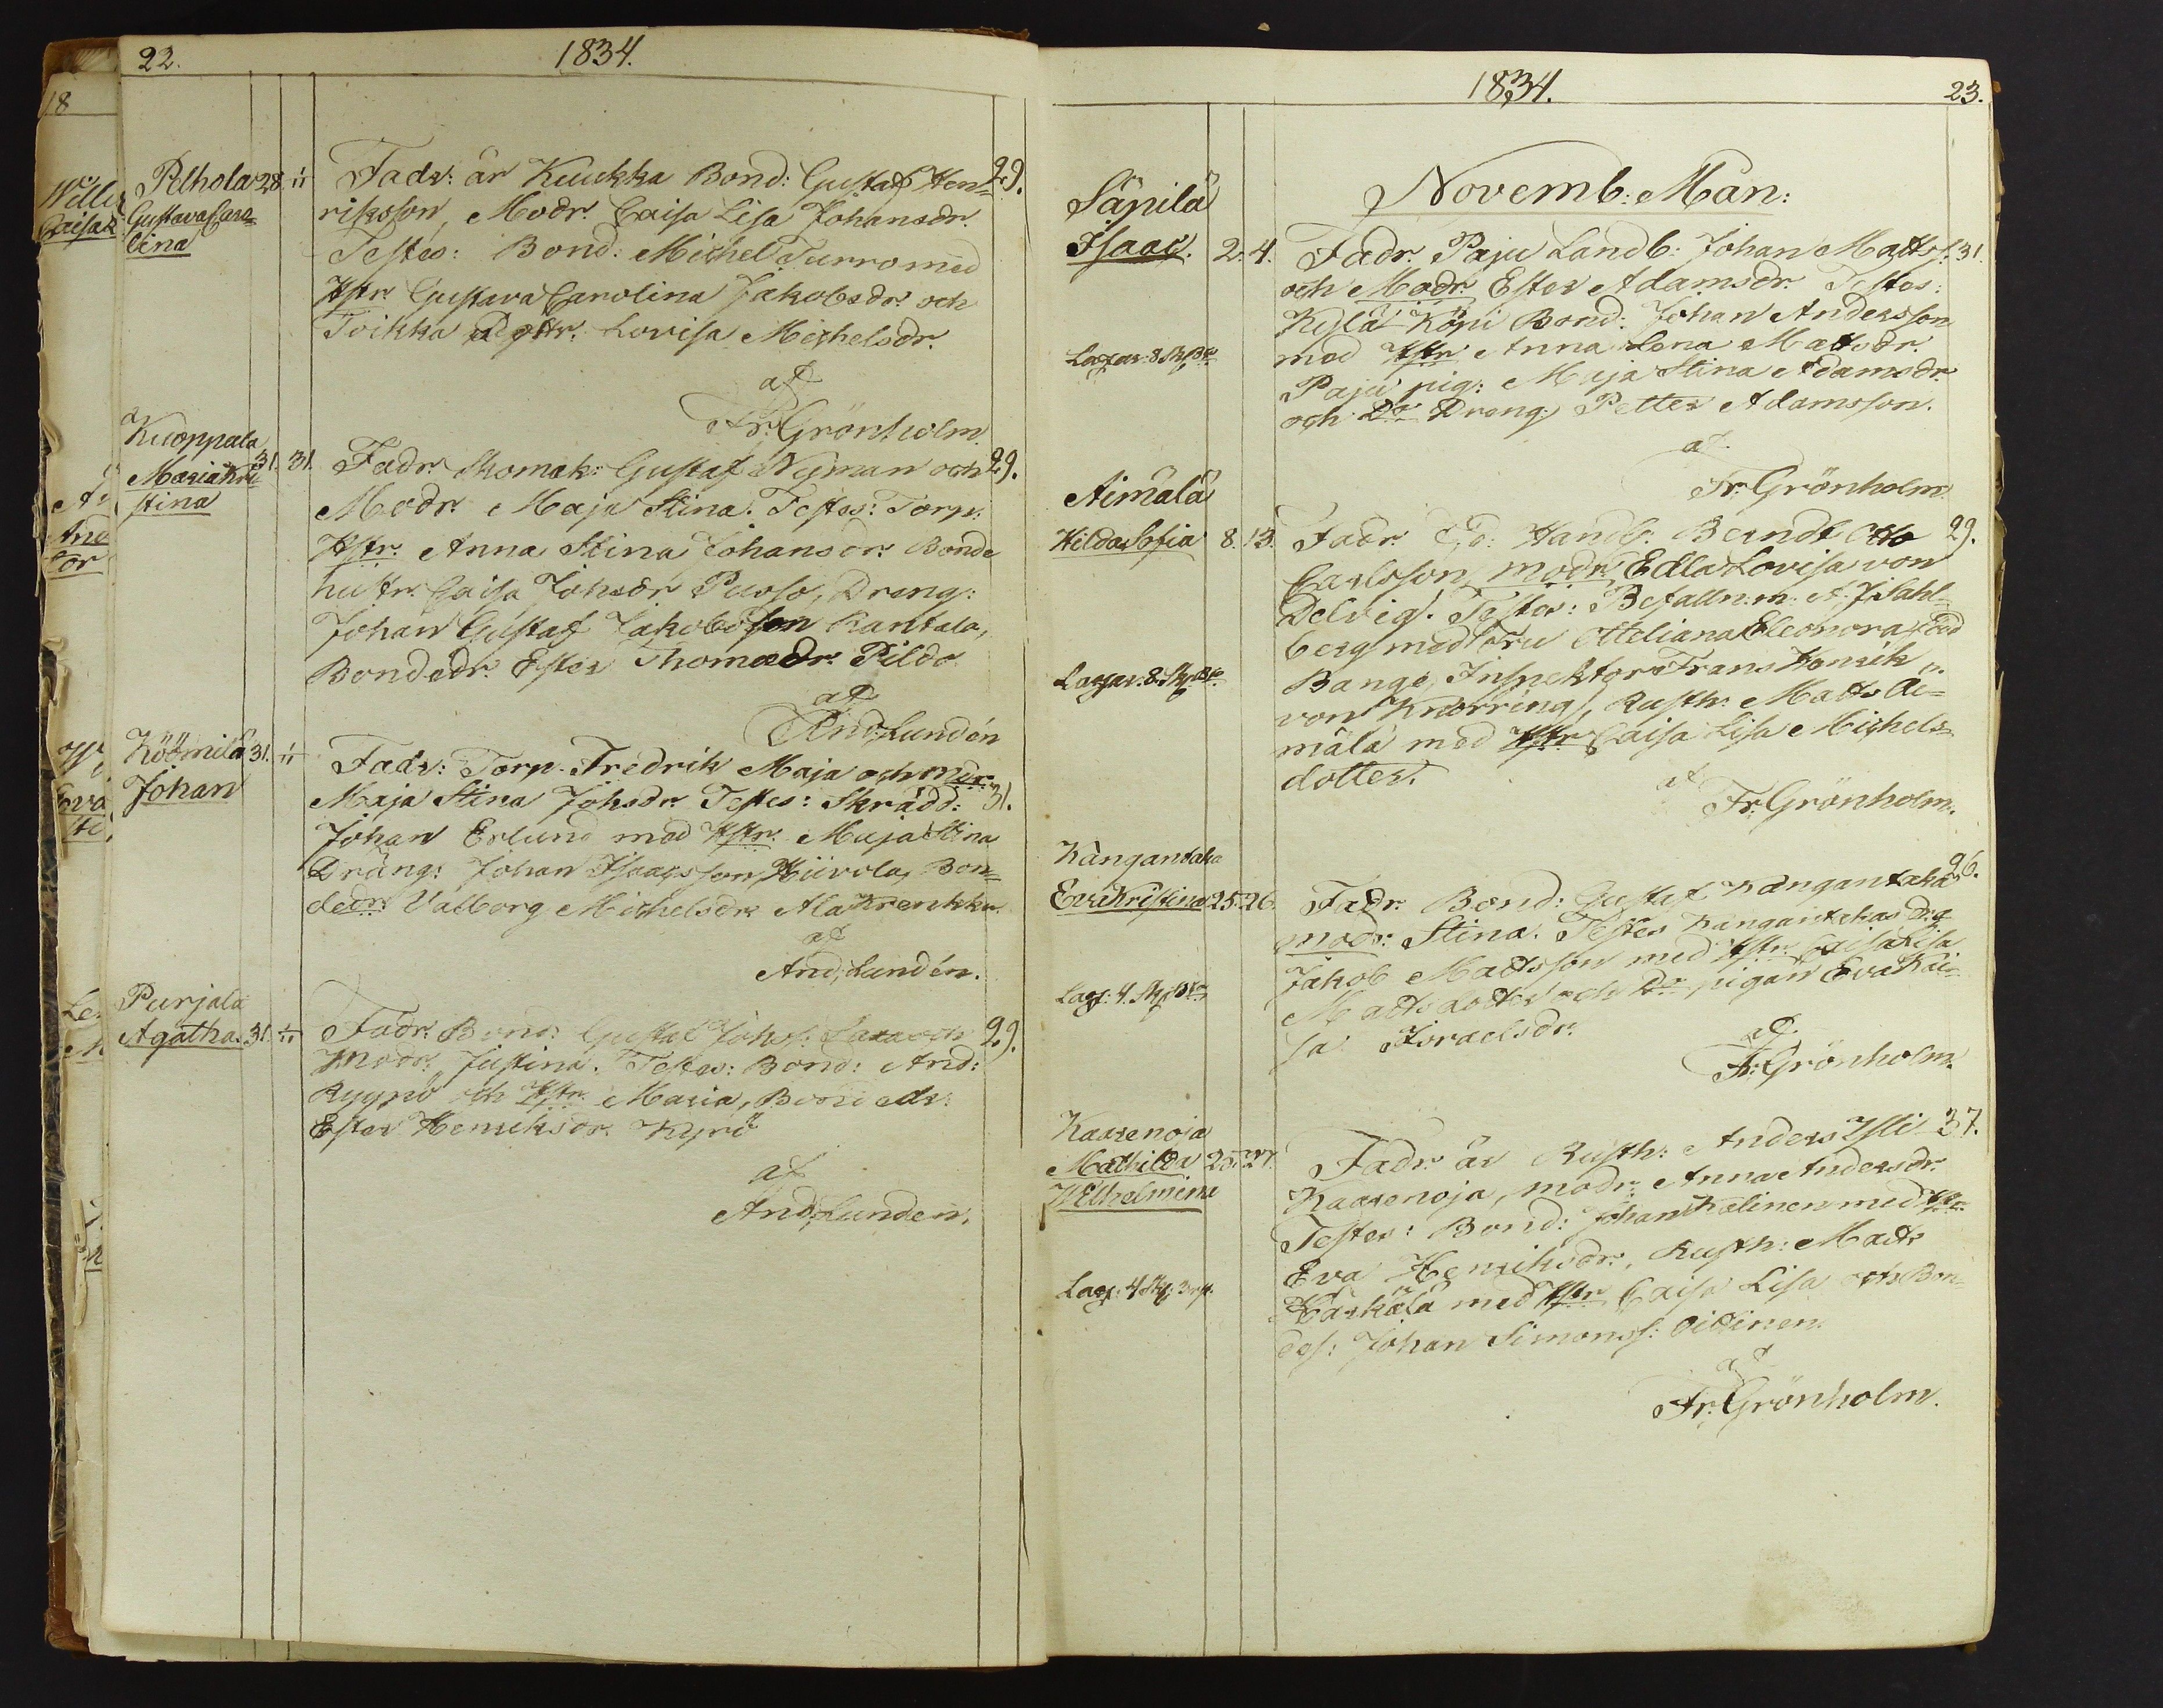 22.
1834.
Pelhola 28 "
Gustava Caro=
lina
Fadr: är Kuukka Bond: Gustaf Hen= 29.
riksson, Modr. Caisa Lisa Johansdr.
Testes: Bond: Michel Turro med
Hstr. Gustava Carolina Jakobsdr. och
Toikka Dottr. Lovisa Michelsdr.
af
Fr. Grönholm.
Kuoppala
Maria Kri= 31. 31.
stina
Fadr. Skomak: Gustaf Nyman och 29.
Modr. Maja Stina. Testes: Torp:
Hstr. Anna Stina Johansdr. Bonde
hustr. Caisa Johsdr Pusso, Dreng:
Johan Gustaf Jakobsson Rantala,
Bondedr. Ester Thomasdr. Pildo
af
And. Lundén
Köömilä 31. "
Johan
Fadr: Torp. Fredrik Maja och Modr.
Maja Stina Johsdr. Testes: Skrädd: 31.
Johan Erlund med Hstr. Maja Stina
Dräng: Johan Isaksson Hiivola, Bon=
dedr. Valborg Michelsdr. Ala Krenkku.
af
And. Lundén.
Purjala
Agatha. 31. "
Fadr. Bond: Gustaf Johs: och 29.
Modr. Justina. Testes: Bond: And:
Ryypö och Hstr. Maria, Bondedr:
Ester Henriksdr. Kyrö
af
And. Lunden.
1834.
23.
Novemb: Mån:
Säpilä
Isaac. 2. 4.
Fadr. Paju Landb: Johan Matts f. 31.
och Modr. Ester Adamsdr. Testes:
Kylä Köpi Bond: Johan Andersson
med Hstr. Anna Lena Mattsdr.
Paju pig: Maja Stina Adamsdr.
och Do Dreng. Petter Adamsson.
af
Fr. Grönholm.
Äimälä
Hilda Sofia 8. 13.
Fadr. Handl: Berndt Otto 29.
Carlsson, modr. Edla Lovisa von
Delvig. Testes: Befalln. m. A. J. Sahl=
berg med Fru Otteliana Eleonora född
Bange, Inspektor Frans Henrik
von Knorring, Rusth: Matts Äi=
mälä med Hstr. Caisa Lisa Michels=
dotter.
af
Fr. Grönholm.
Kangantaka
Eva Kristina 25. 26.
Fadr. Bond: Gustaf Kangantaka 26.
modr. Stina. Testes Kangantakas
Jakob Mattsson med Hstr. Caisa Lisa
Mattsdotter och Do pigan Eva Kai=
sa Israelsdr.
af
Fr. Grönholm.
Kaarenoja
Mathilda 25. 27.
Wilhelmina
Fadr. är Rusth: Anders Ylli 37.
Kaarenoja, modr. Anna Andersdr.
Testes: Bond: Johan Kalinen med Hstr.
Eva Henriksdr., Rusth: Matts
Härkälä med Hstr. Caisa Lisa och Bon=
des: Johan Simons: Oitinen.
af
Fr. Grönholm.